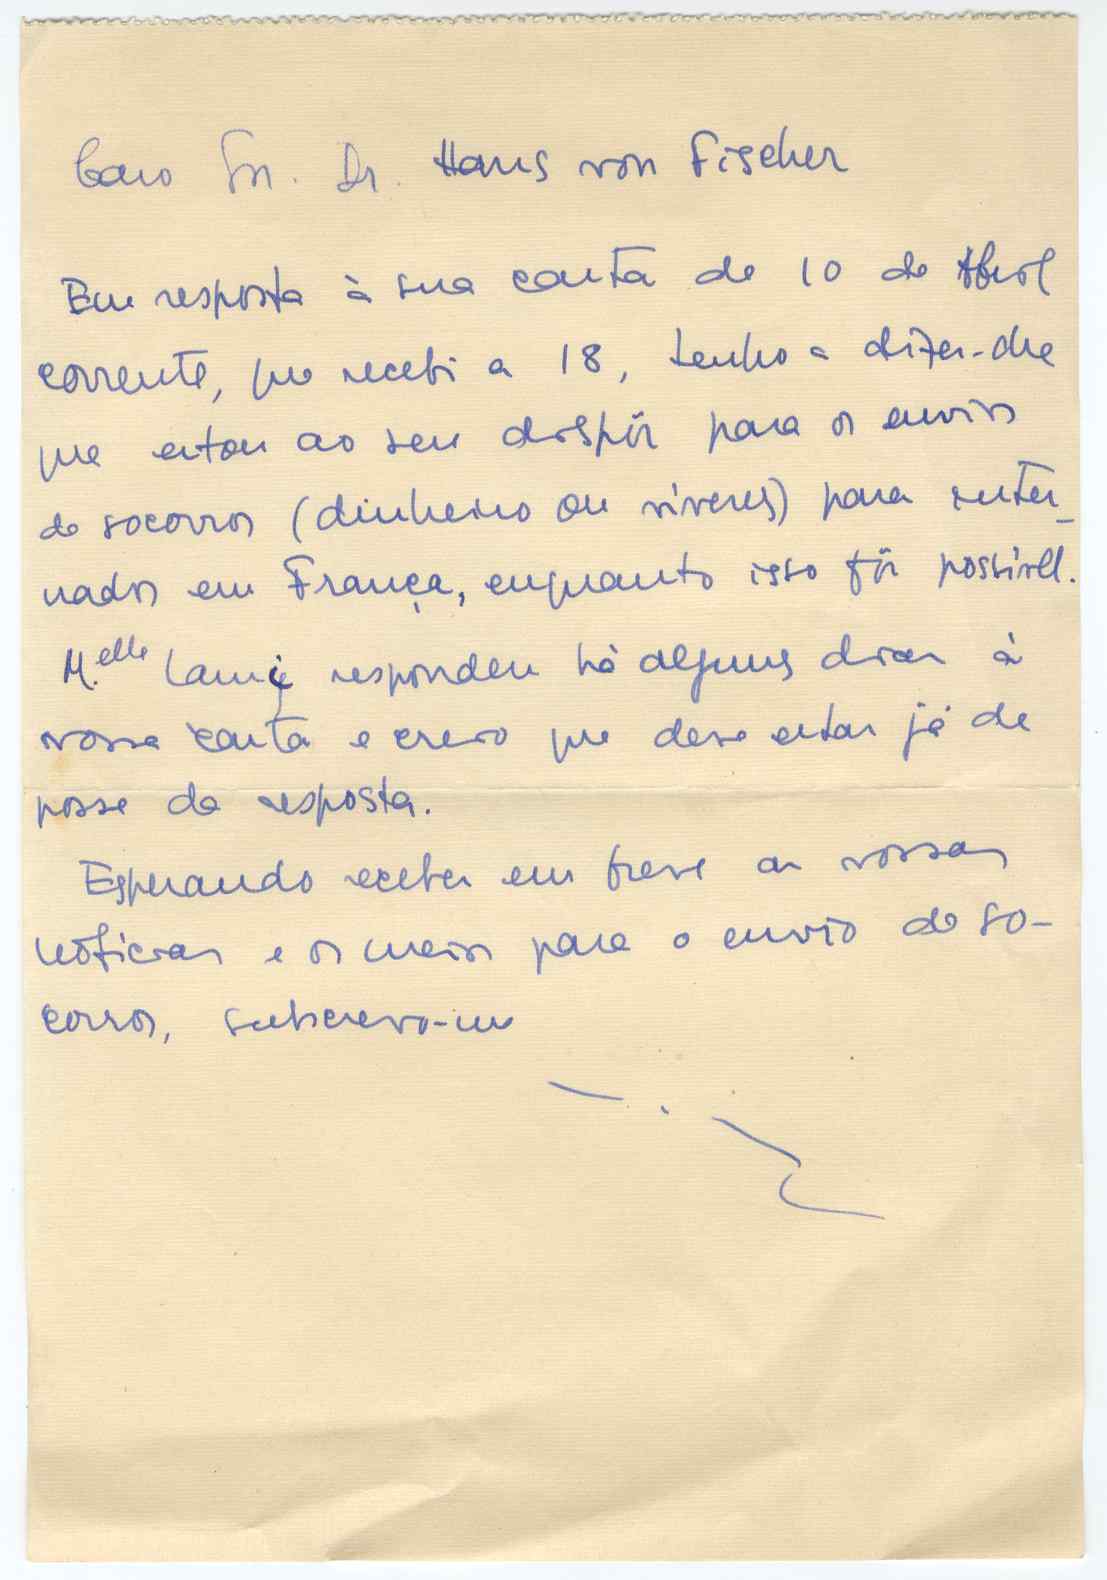 Caro Snr. Dr. Hans von Fischer
Em resposta à sua carta de 10 de Abril
corrente, que recebi a 18, tenho a dizer-lhe
que estou ao seu dispôr para os envios
de socorros (dinheiro ou víveres) para inter-
nados em França, enquanto isso fôr possivel.
M.elle respondeu há alguns dias à
vossa carta e creio que deve estar já de
posse da resposta.
Esperando receber em breve as vossas
notícias e os meios para o envio de so-
corros, subscrevo-me